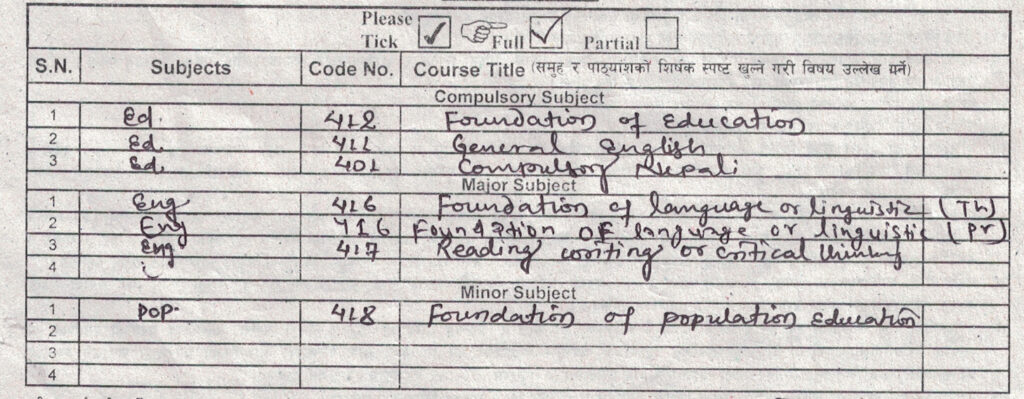 Please Tick ✓ Full ✓ Partial
S.N. Subjects Code No. Course Title (समुह र पाठ्यांशको शिर्षक स्पष्ट खुल्ने गरी विषय उल्लेख गर्ने)
Compulsory Subject
1 Ed. 412 Foundation of Education
2 Ed. 411 General English
3 Ed. 401 Compulsory Nepali
Major Subject
1 Eng 416 Foundation of language or linguistic (Th)
2 Eng 416 Foundation OF language or linguistic (Pr)
3 Eng 417 Reading writing or critical thinking
4
Minor Subject
1 pop. 418 Foundation of population Education
2
3
4